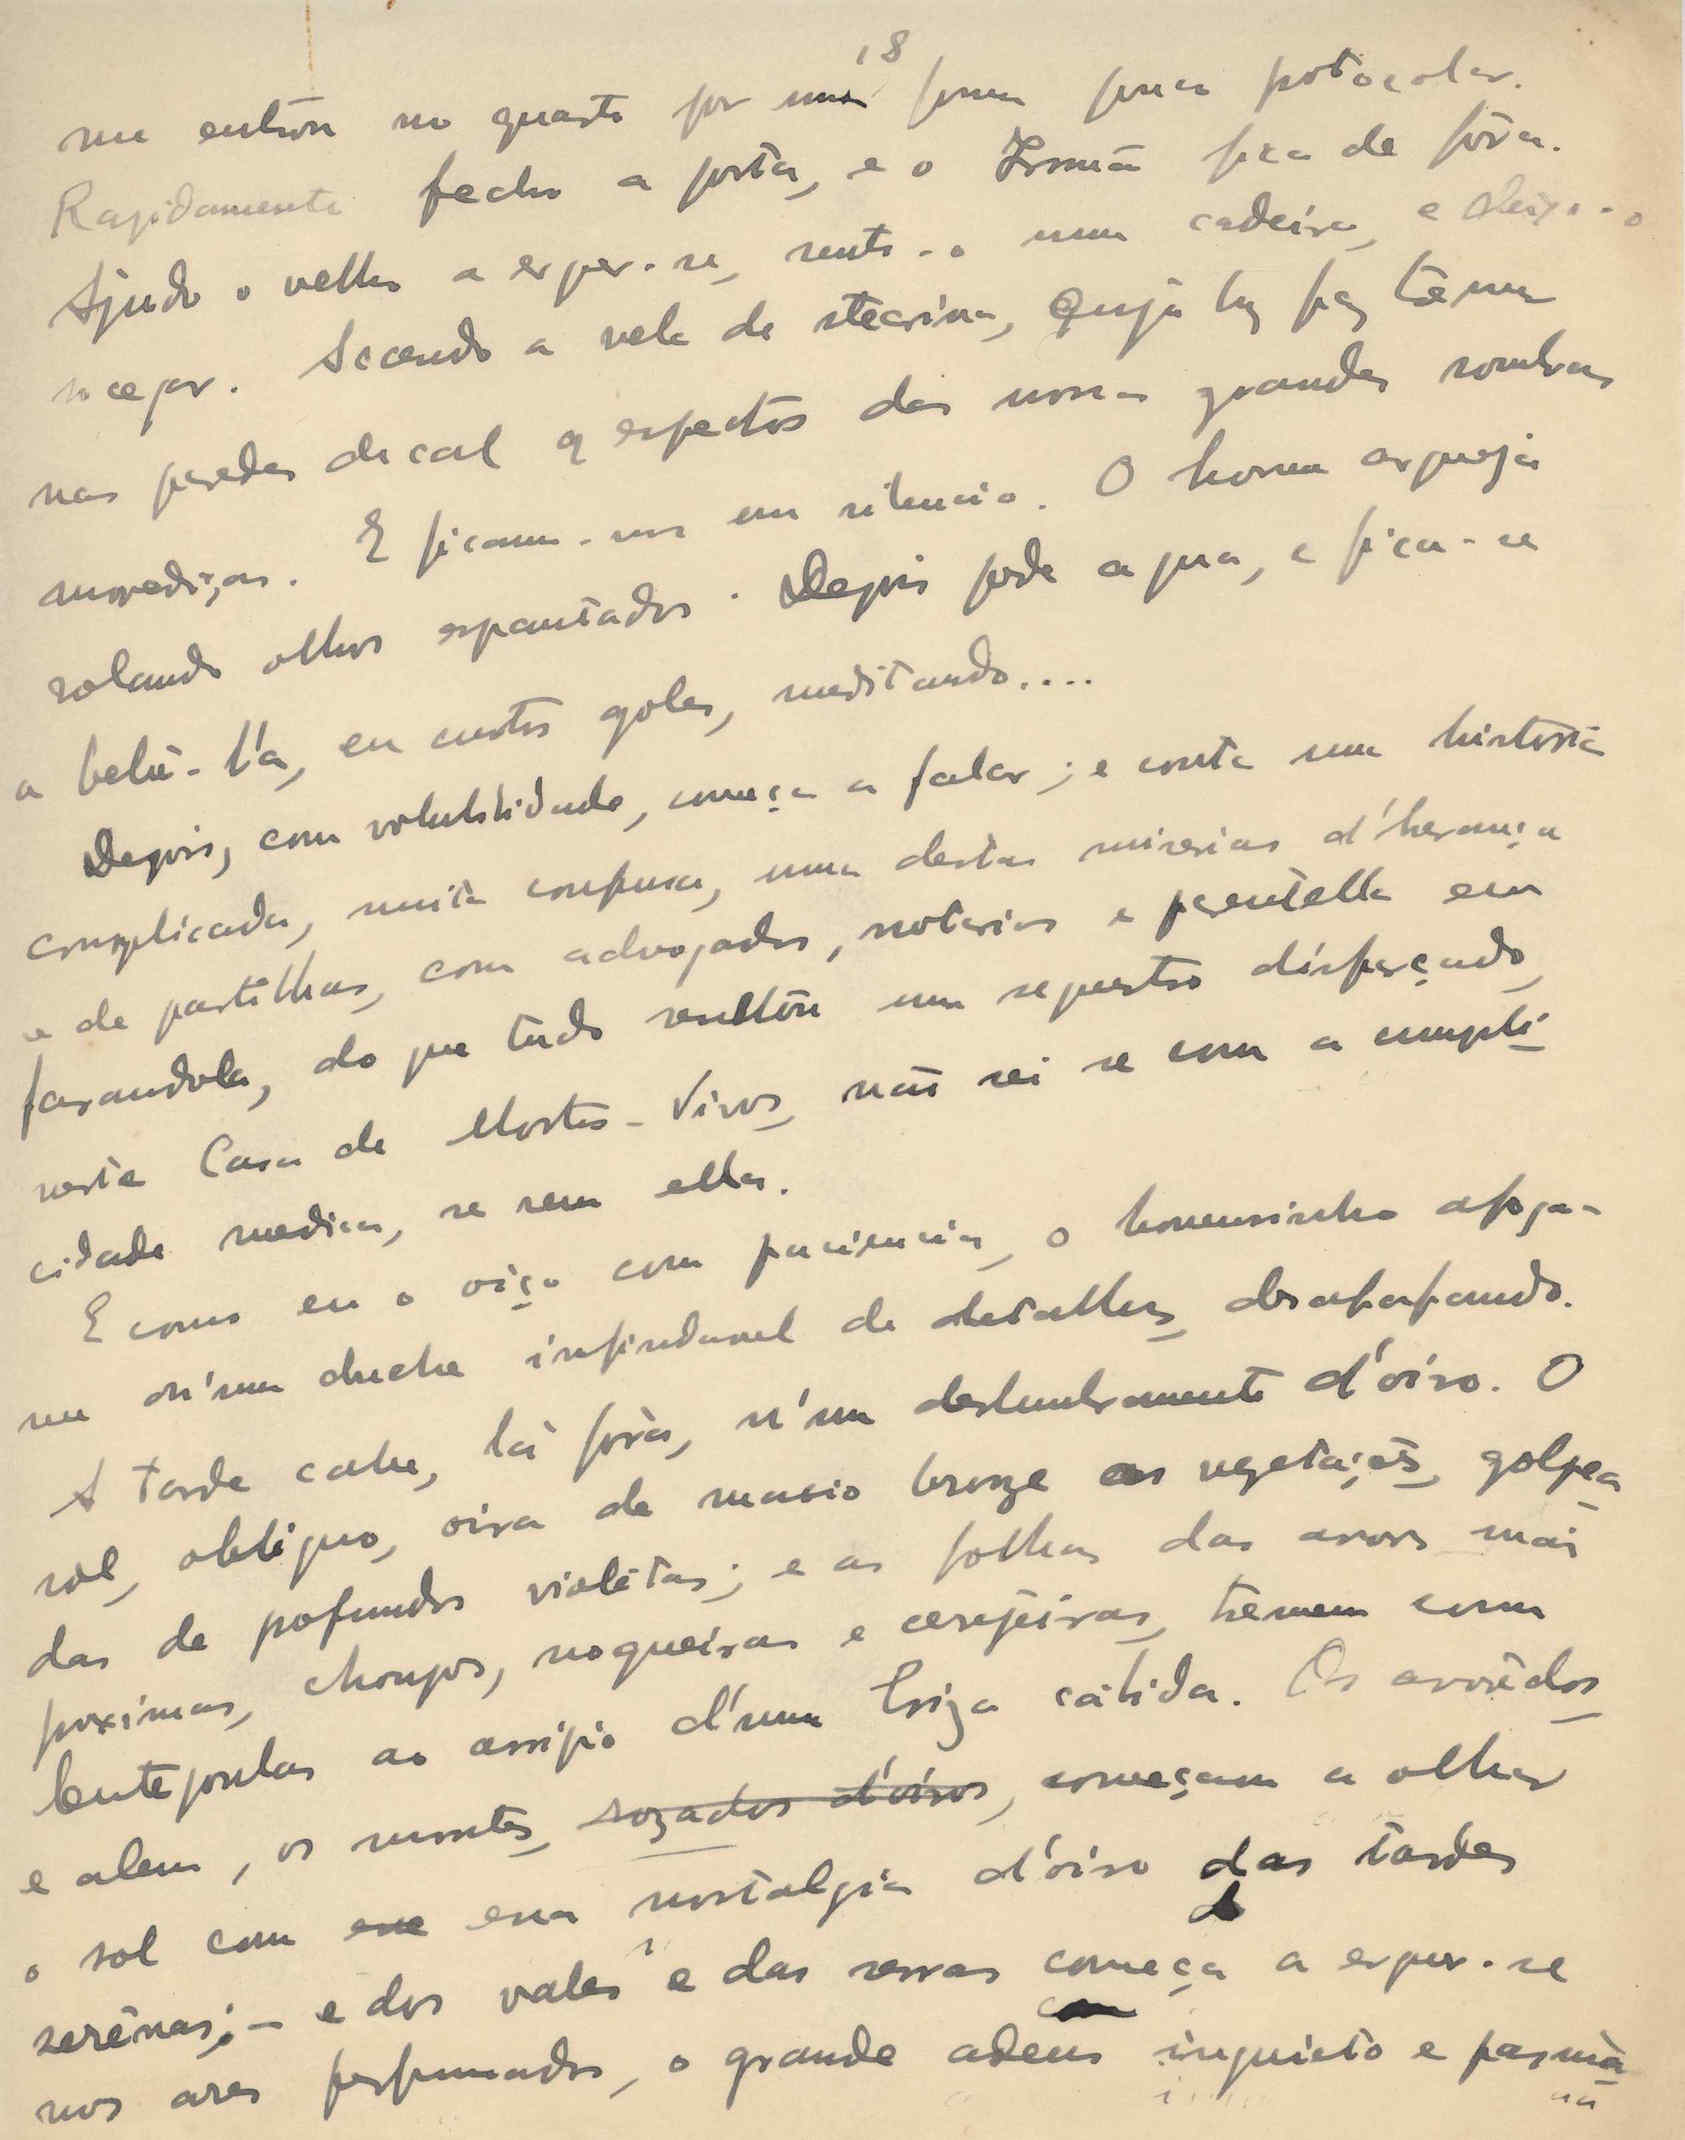 18
me entrou no quarto por uma forma pouco potocolar.
Rapidamente fecho a porta, e o Irmão fica de fóra.
Ajudo o velho a erguer-se, sento-o numa cadeira, e deixo-o
socegar. Accendo a vela de stearina, cuja luz faz tremer
nas paredes de cal os espectros das nossas grandes sombras
movediças. E ficamo-nos em silencio. O homem arqueja
rolando olhos espantados. Depois pede agua, e fica-se
a bebê-l'a, em curtos goles, meditando....
Depois, com volubilidade, começa a falar; e conta uma historia
complicada, muito confusa, uma destas miserias d'herança
e de partilhas, com advogados, notarios e parentella em
farandola, do que tudo resultou um sequestro disfarçado,
nesta Casa de Mortos-Vivos, não sei se com a cumpli
cidade medica, se sem ella.
E como eu o oiço com paciencia, o homensinho afoga-
me n'um duche infindavel de detalhes, desabafando.
A tarde cahe, lá fóra, n'um deslumbramento d'oiro. O
sol, obliquo, oira de macio bronze as vegetações, golpea
das de pofundos violêtas; e as folhas das arvores mais
poximas, choupos, nogueiras e cerejeiras, tremem como
lentejoulas ao arripio d'uma briza cálida. Os arvorêdos
e alem, os montes, rozados d'óiros, começam a olhar
o sol com essa nostalgia d'oiro das tardes
serênas; - e dos vales e das serras começa a erguer-se
nos ares perfumados, o grande adeus inquieto e pasmá